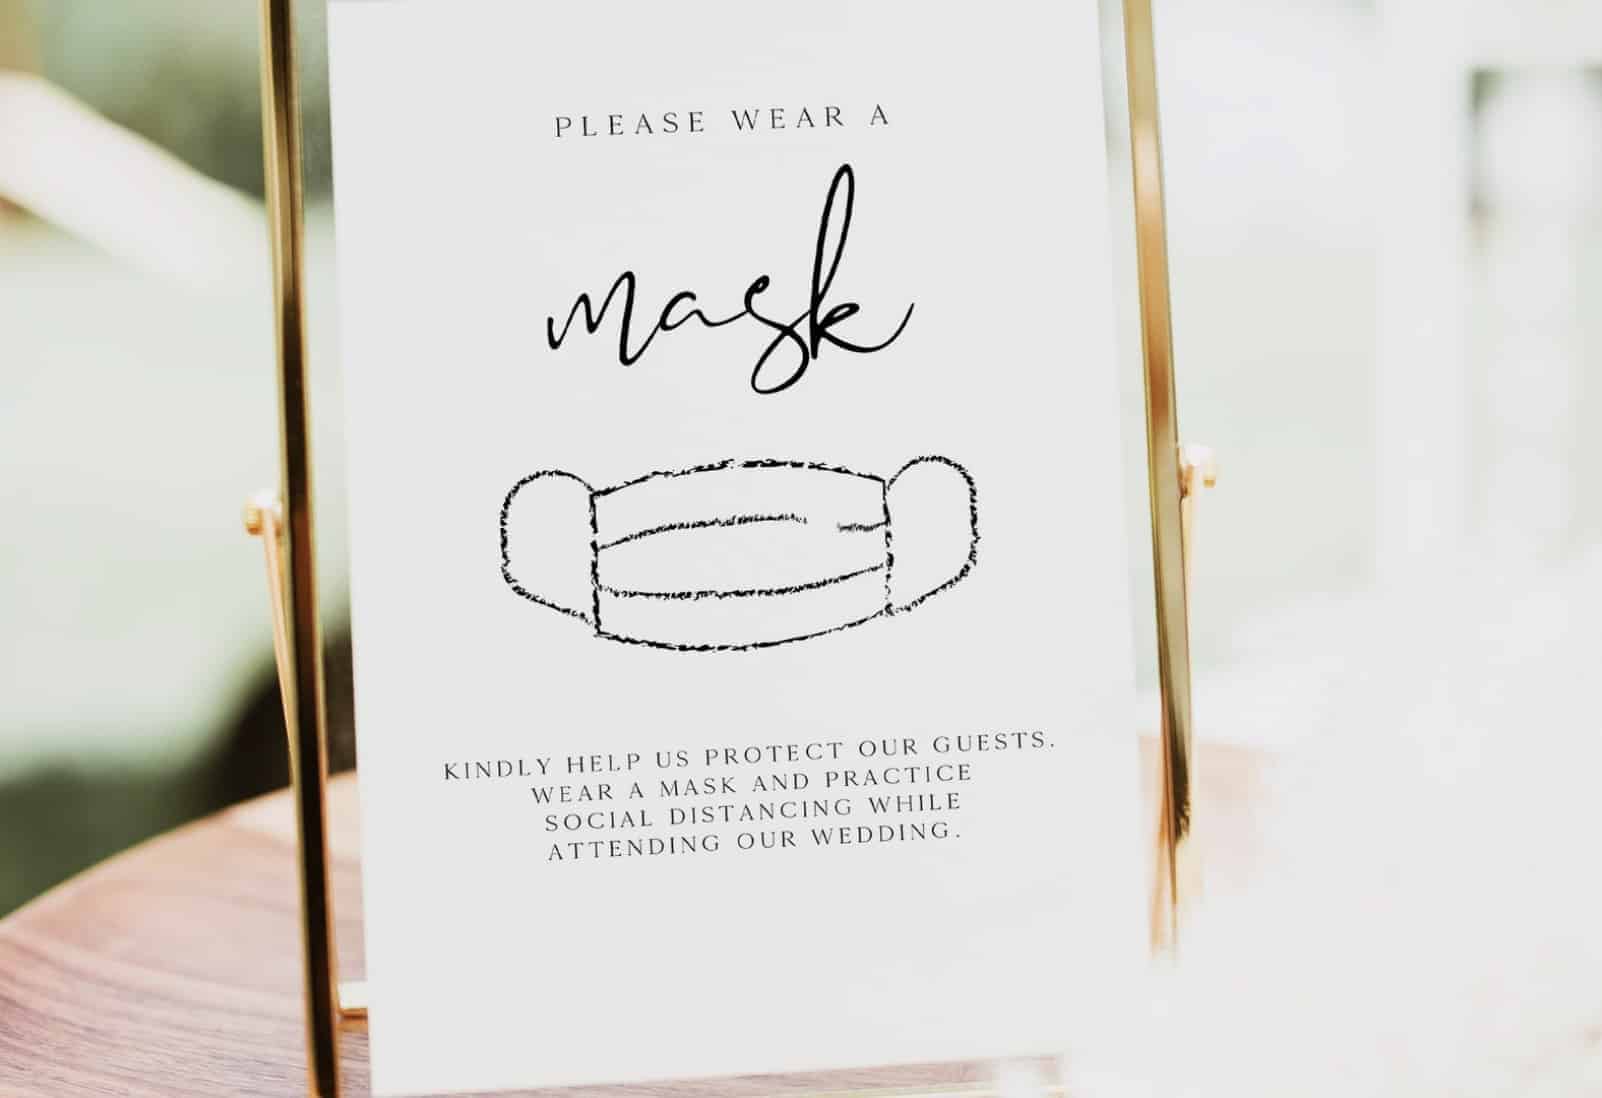 PLEASE WEAR A
mask
KINDLY HELP US PROTECT OUR GUESTS.
WEAR A MASK AND PRACTICE
SOCIAL DISTANCING WHILE
ATTENDING OUR WEDDING.